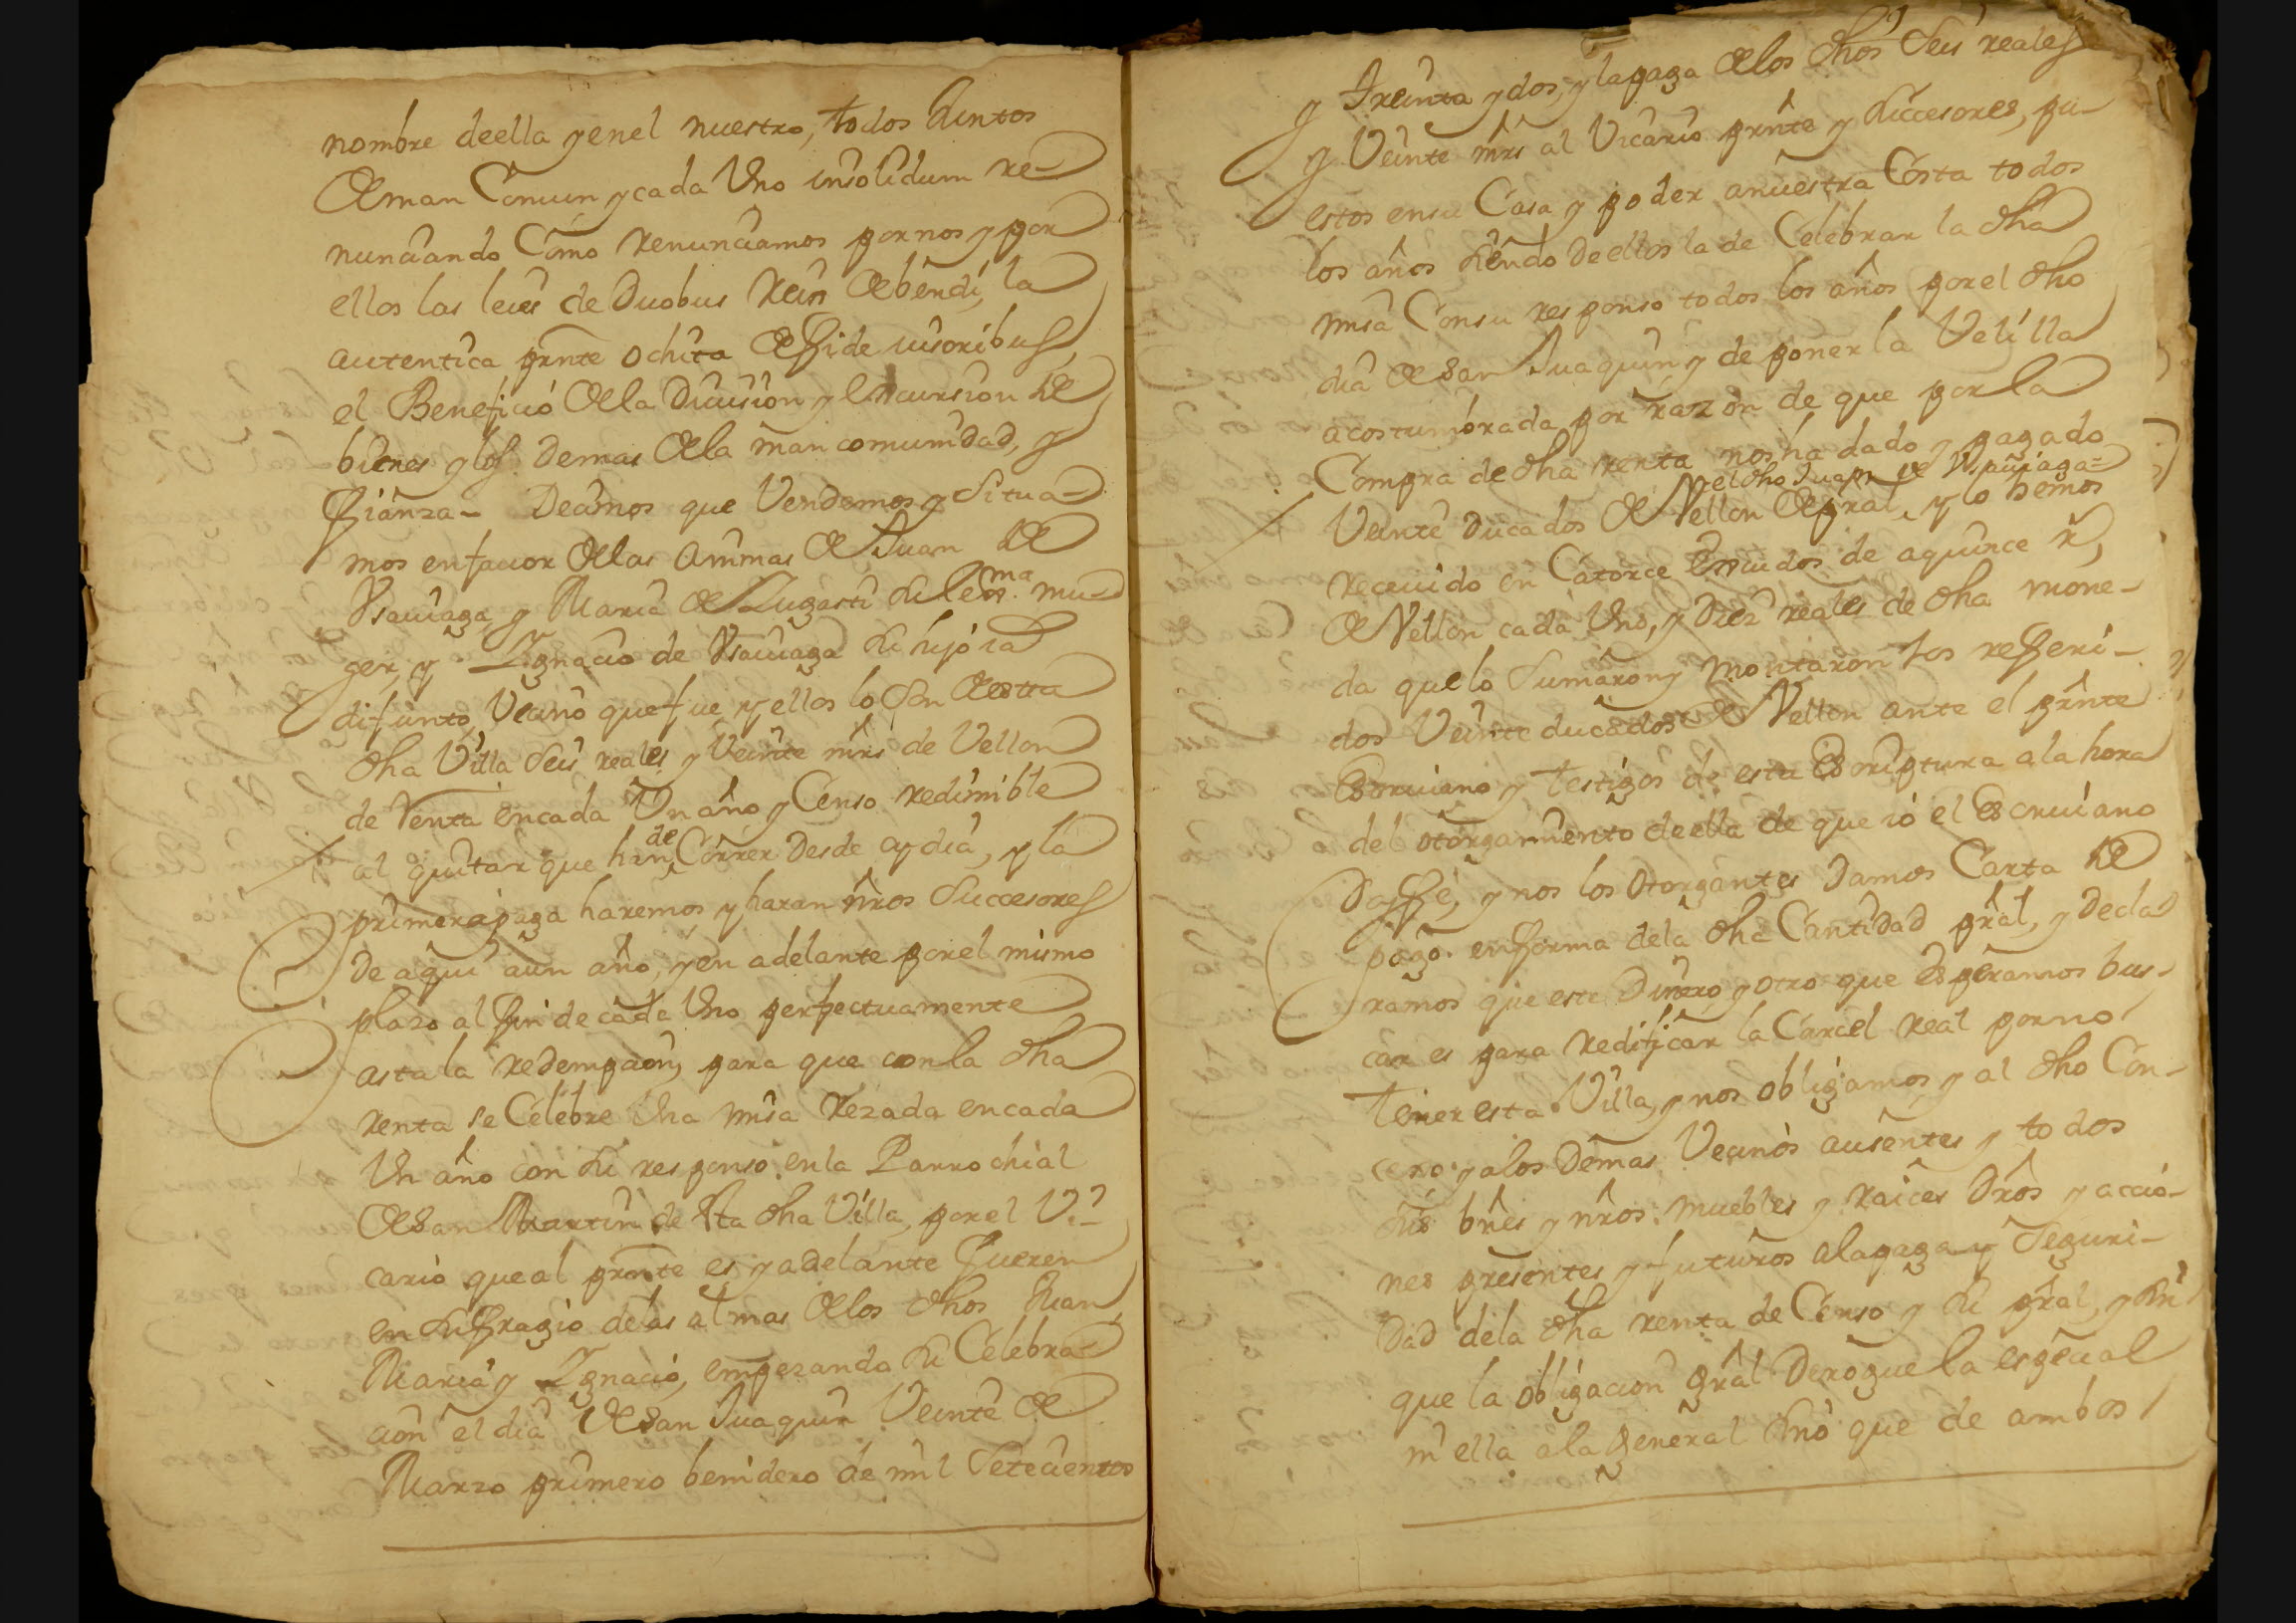 nombre deella y enel nuestro, todos Juntos
de man Comun y cada Uno insolidum re-
nunciando Como renunciamos por nos y por
ellos las leies de Duobus Reis debendi, la
autentica prnte ochita de fide iusoribus,
el Beneficio de la Diuision y Excursion de
bienes y los demas de la mancomunidad, y
fianza - Decimos que Vendemos y Situa-
mos en fauor de las animas de Juan de
Vsauiaga y Maria de Lugasti su lexma mu-
ger, y Ygnacio de Vsauiaga su hijo ia
difunto, Vecino que fue y ellos lo son desta
dha Villa seis reales y Veinte mrs de Vellon
de Renta encada Un año y Censo redimible
al quitar que han de Correr desde oy dia, y la
primera paga haremos y haran nros Succesores
de aqui aun año, y en adelante por el mismo
plazo al fin de cada Uno perpectuamente
asta la redempcion, para que con la dha
renta se Celebre Una misa Rezada encada
Un año con su responso en la Parrochial
de San Martin de sta dha Villa, por el Vi-
cario que al prnte es y adelante fueren
en sufragio de las almas de los dhos Juan
Maria y Ygnacio, empezando su Celebra-
cion el dia de San Juaquin Veinte de
Marzo primero benidero de mil Setecientos
y treinta y dos, y la paga de los dhos Seis reales
y Veinte mrs al Vicario prnte y succesores, pu-
estos en su Casa y poder a nuestra Costa todos
los años siendo de ellos la de Celebrar la dha
misa Con su responso todos los años por el dho
dia de San Juaquin y de poner la Velilla
acostumbrada por razon de que por la
Compra de dha renta nos ha dado y pagado
el dho Juan de Vsauiaga
Veinte Ducados de Vellon de pral, y lo hemos
receuido en Catorce Escudos de a quince rs,
de Vellon cada Uno, y Diez reales de dha mone-
da que lo Sumaron y montaron los referi-
dos Veinte ducados de Vellon ante el prnte
Escriuano y testigos de esta Escriptura a la hora
del otorgamiento de ella de que io el Escriuano
Doy fe, y nos los otorgantes Damos Carta de
pago en forma de la dha Cantidad pral, y decla-
ramos que este Dinero y otro que esperamos bus-
car es para redificar la Carcel real por no
tener esta Villa, y nos obligamos, y al dho Con-
cejo y a los Demas Vecinos ausentes y todos
sus bnes y nros: muebles y raices Dros y accio-
nes presentes y futuros a la paga y Seguri-
dad de la dha renta de Censo y su pral, y sin
que la obligacion gral derogue la especial
ni ella a la general sino que de ambos